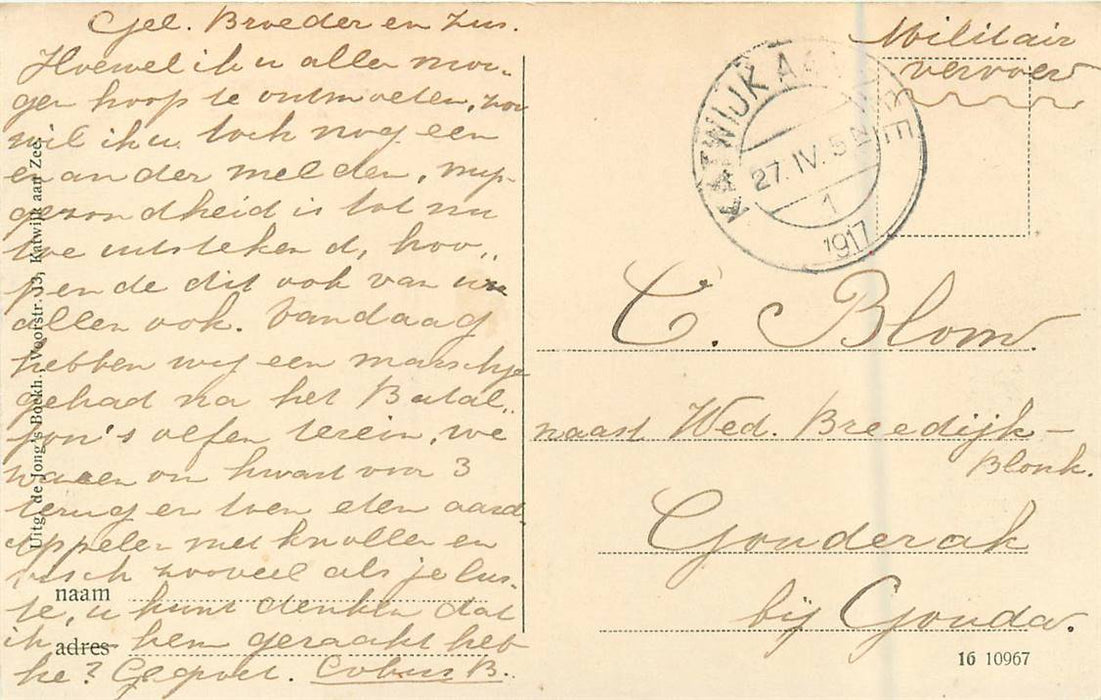 Gel. Broeder en Zus.
Hoewel ik u allen mor-
gen hoop te ontmoeten, zoo
wil ik u toch nog een
en ander melden, mijn
gezondheid is tot nu
toe uitsteken d, hoo„
pen de dit ook van u
allen ook. Vandaag
hebben wij een marschje
gehad na het Batal„
jon's oefen terein, we
waren om kwart voor 3
terug en toen eten aard
appelen met knollen en
visch zooveel als je lus-
te, u kunt denken dat
ik hem geraakt heb
he? Gegroet. Cobus B.
Uitg. de Jong's Boekh., Voorstr. 13, Katwijk aan Zee.
naam
adres
Militair
vervoer
KATWIJK AAN ZEE
27.IV. 5 N
1
1917
C. Blom.
naast Wed. Breedijk-
Blonk.
Gouderak
bij Gouda.
16 10967